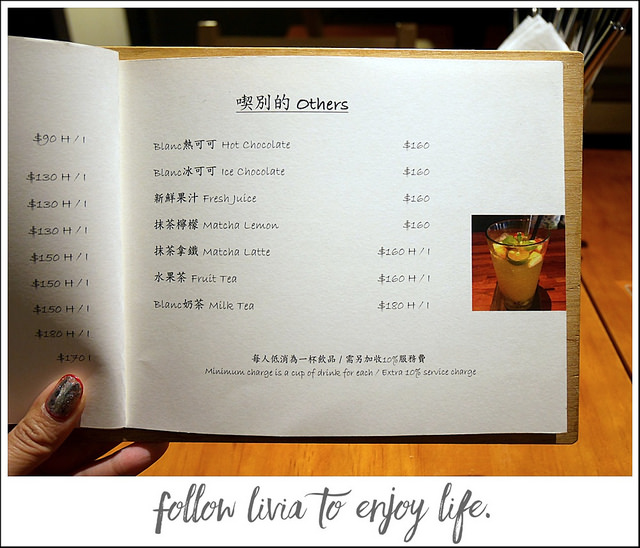 $90 H / I
$130 H / I
$130 H / I
$130 H / I
$150 H / I
$150 H / I
$150 H / I
$180 H / I
$170 I
喫別的 Others
Blanc熱可可 Hot Chocolate $160
Blanc冰可可 Ice Chocolate $160
新鮮果汁 Fresh Juice $160
抹茶檸檬 Matcha Lemon $160
抹茶拿鐵 Matcha Latte $160 H / I
水果茶 Fruit Tea $160 H / I
Blanc奶茶 Milk Tea $180 H / I
每人低消為一杯飲品 / 需另加收10%服務費
Minimum charge is a cup of drink for each / Extra 10% service charge
follow livia to enjoy life.